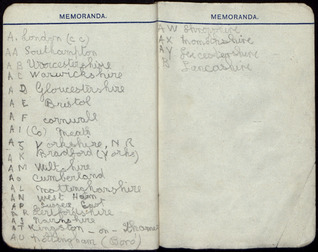 MEMORANDA.
A. London (cc)
AA Southampton
A B Worcestershire
A C Warwickshire
A D Gloucestershire
A E Bristol
A F cornwall
A I (Co) Meath
A J Yorkshire, N R
A K Bradford (Yorks)
A M Wiltshire
A O Cumberland
A L Nottinghamshire
AN West Ham
A P Sussex East
A R Hertfordshire
A S Nairnshire
AT Kingston - on -
AU Nottingham (Boro)
MEMORANDA.
A W Shropshire
AX Monmouthshire
AY Leicestershire
B Lancashire